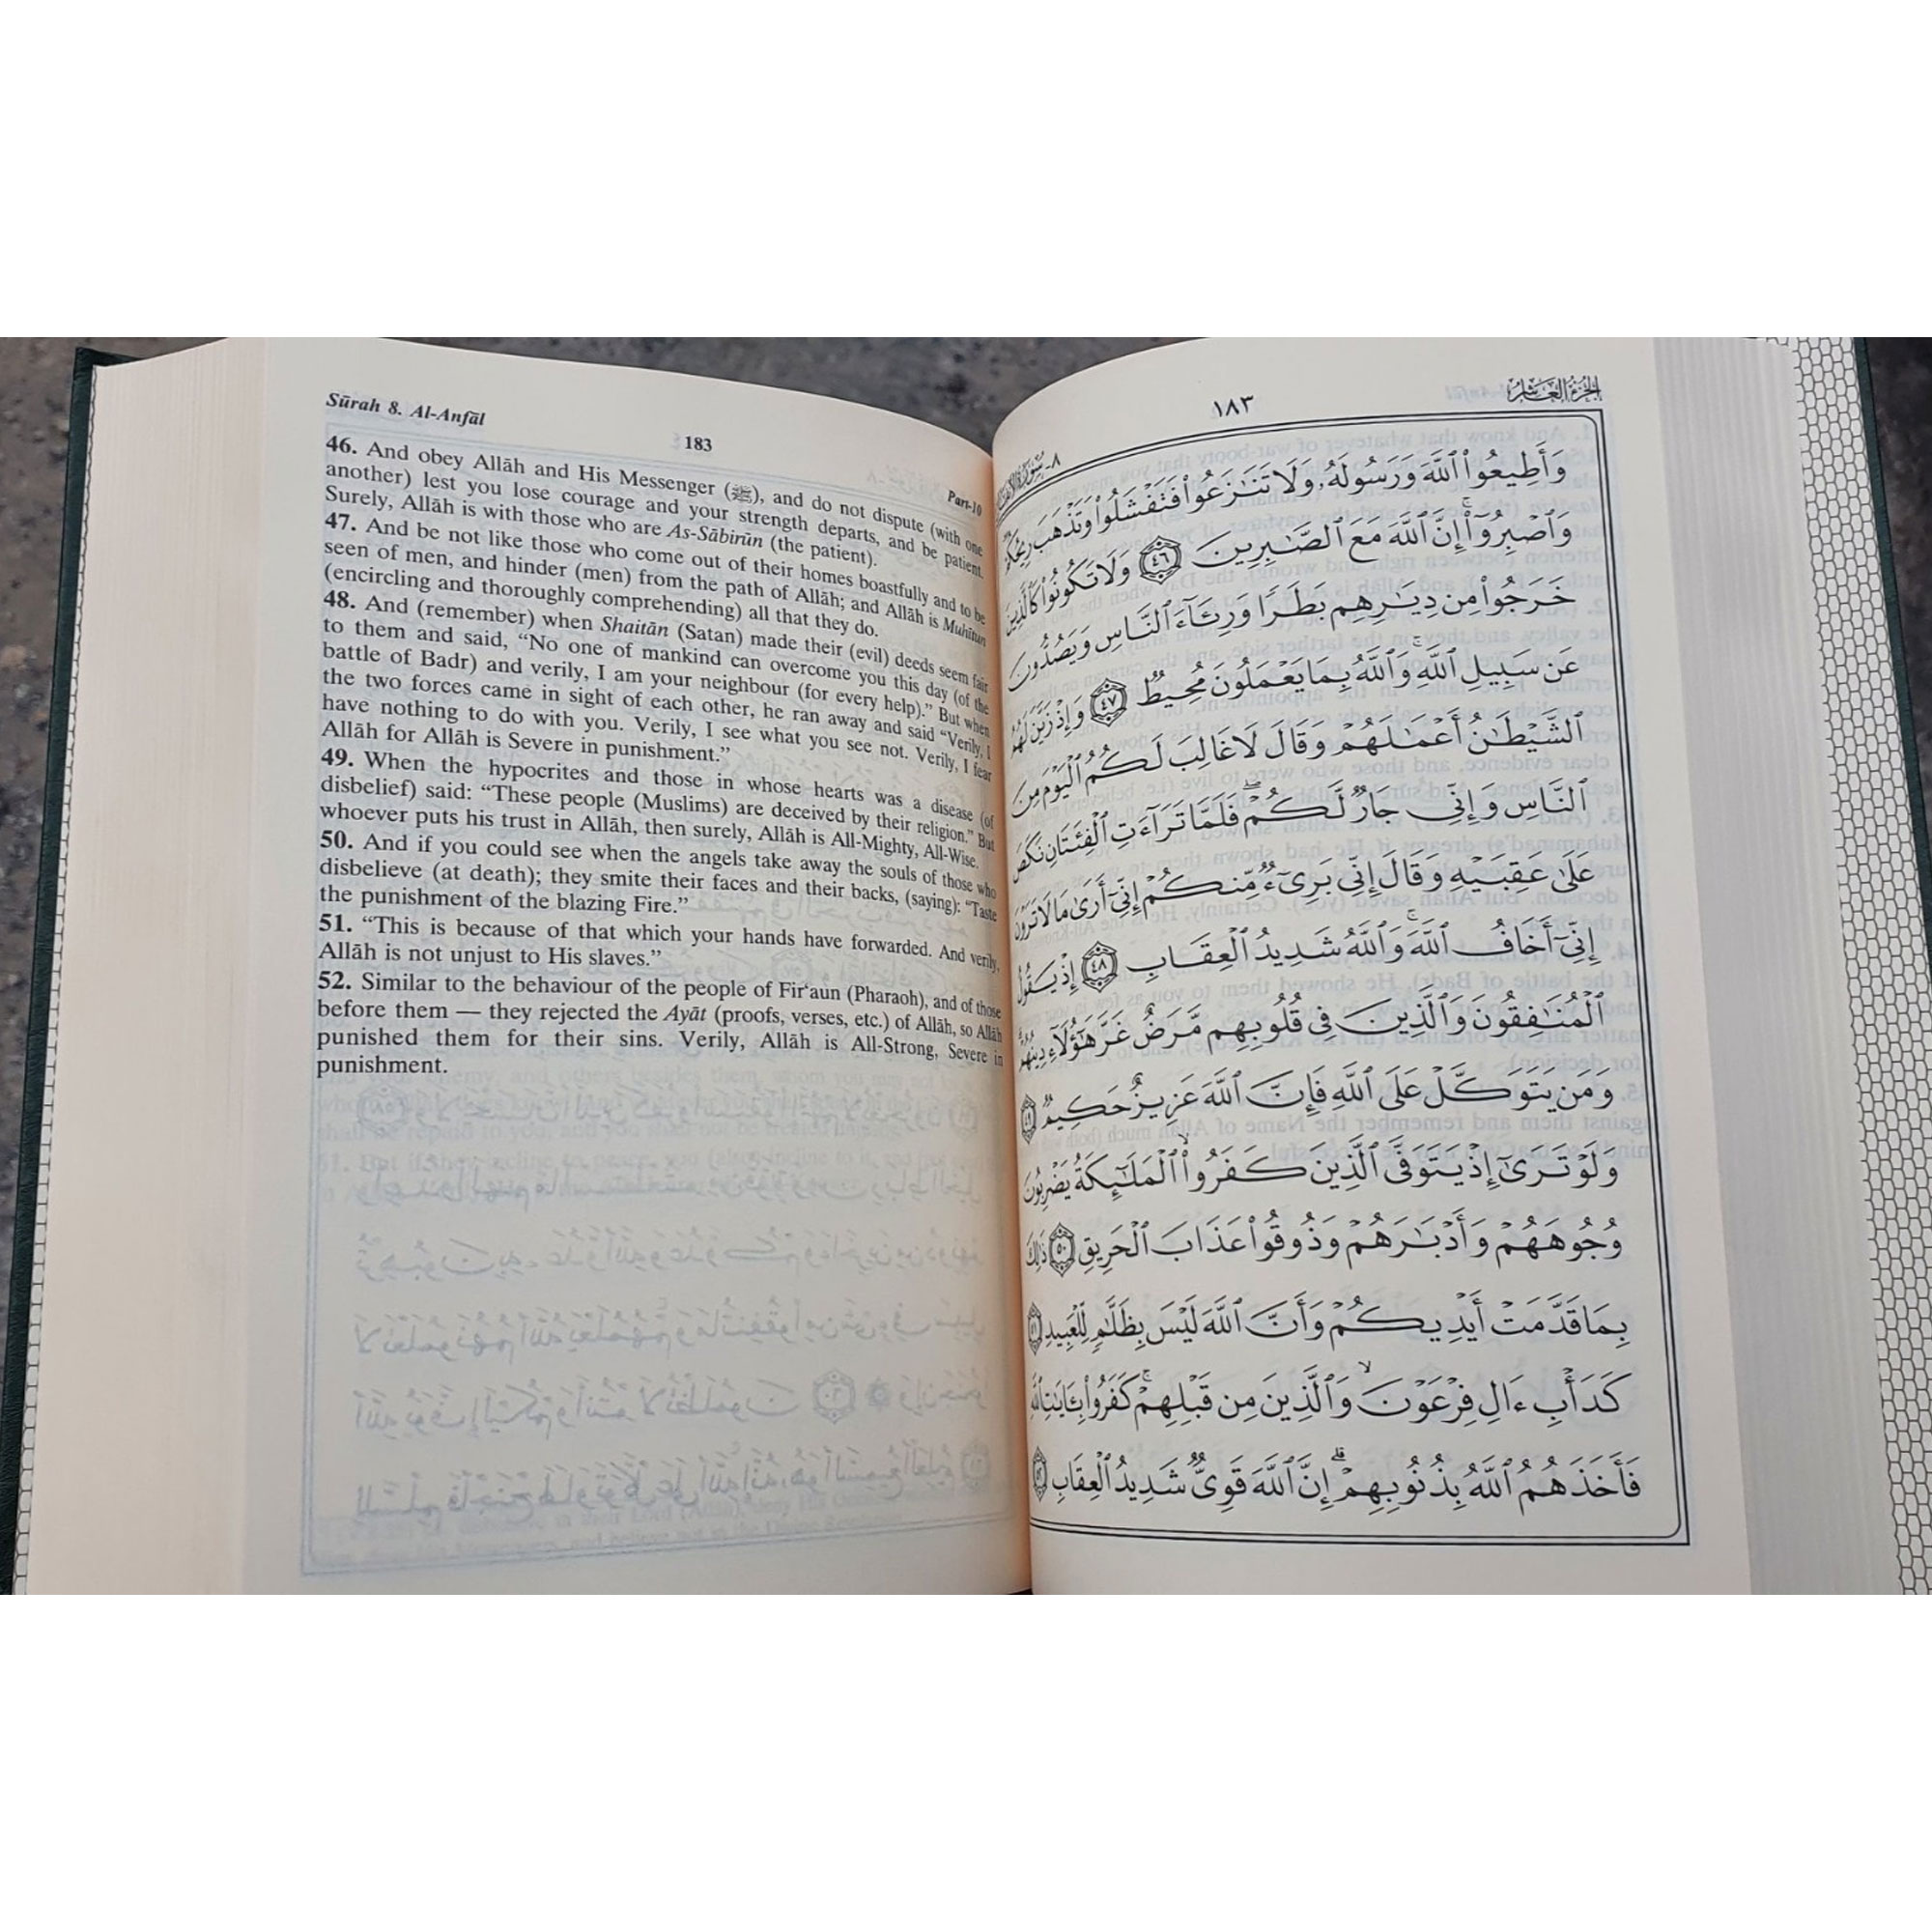 Sūrah 8. Al-Anfāl
183
Part-10
46. And obey Allāh and His Messenger (ﷺ), and do not dispute (with one
another) lest you lose courage and your strength departs, and be patient.
Surely, Allāh is with those who are As-Sābirūn (the patient).
47. And be not like those who come out of their homes boastfully and to be
seen of men, and hinder (men) from the path of Allāh; and Allāh is Muhītun
(encircling and thoroughly comprehending) all that they do.
48. And (remember) when Shaitān (Satan) made their (evil) deeds seem fair
to them and said, “No one of mankind can overcome you this day (of the
battle of Badr) and verily, I am your neighbour (for every help).” But when
the two forces came in sight of each other, he ran away and said “Verily, I
have nothing to do with you. Verily, I see what you see not. Verily, I fear
Allāh for Allāh is Severe in punishment.”
49. When the hypocrites and those in whose hearts was a disease (of
disbelief) said: “These people (Muslims) are deceived by their religion.” But
whoever puts his trust in Allāh, then surely, Allāh is All-Mighty, All-Wise.
50. And if you could see when the angels take away the souls of those who
disbelieve (at death); they smite their faces and their backs, (saying): “Taste
the punishment of the blazing Fire.”
51. “This is because of that which your hands have forwarded. And verily,
Allāh is not unjust to His slaves.”
52. Similar to the behaviour of the people of Fir‘aun (Pharaoh), and of those
before them — they rejected the Ayāt (proofs, verses, etc.) of Allāh, so Allāh
punished them for their sins. Verily, Allāh is All-Strong, Severe in
punishment.
الجزء العاشر
١٨٣
٨- سورة الأنفال
وَأَطِيعُوا۟ ٱللَّهَ وَرَسُولَهُۥ وَلَا تَنَـٰزَعُوا۟ فَتَفْشَلُوا۟ وَتَذْهَبَ رِيحُكُمْ
وَٱصْبِرُوٓا۟ۚ إِنَّ ٱللَّهَ مَعَ ٱلصَّـٰبِرِينَ ٤٦ وَلَا تَكُونُوا۟ كَٱلَّذِينَ
خَرَجُوا۟ مِن دِيَـٰرِهِم بَطَرًا وَرِئَآءَ ٱلنَّاسِ وَيَصُدُّونَ
عَن سَبِيلِ ٱللَّهِۚ وَٱللَّهُ بِمَا يَعْمَلُونَ مُحِيطٌ ٤٧ وَإِذْ زَيَّنَ لَهُمُ
ٱلشَّيْطَـٰنُ أَعْمَـٰلَهُمْ وَقَالَ لَا غَالِبَ لَكُمُ ٱلْيَوْمَ مِنَ
ٱلنَّاسِ وَإِنِّى جَارٌ لَّكُمْۖ فَلَمَّا تَرَآءَتِ ٱلْفِئَتَانِ نَكَصَ
عَلَىٰ عَقِبَيْهِ وَقَالَ إِنِّى بَرِىٓءٌ مِّنكُمْ إِنِّىٓ أَرَىٰ مَا لَا تَرَوْنَ
إِنِّىٓ أَخَافُ ٱللَّهَۚ وَٱللَّهُ شَدِيدُ ٱلْعِقَابِ ٤٨ إِذْ يَقُولُ
ٱلْمُنَـٰفِقُونَ وَٱلَّذِينَ فِى قُلُوبِهِم مَّرَضٌ غَرَّ هَـٰٓؤُلَآءِ دِينُهُمْۗ
وَمَن يَتَوَكَّلْ عَلَى ٱللَّهِ فَإِنَّ ٱللَّهَ عَزِيزٌ حَكِيمٌ ٤٩
وَلَوْ تَرَىٰٓ إِذْ يَتَوَفَّى ٱلَّذِينَ كَفَرُوا۟ۙ ٱلْمَلَـٰٓئِكَةُ يَضْرِبُونَ
وُجُوهَهُمْ وَأَدْبَـٰرَهُمْ وَذُوقُوا۟ عَذَابَ ٱلْحَرِيقِ ٥٠ ذَٰلِكَ
بِمَا قَدَّمَتْ أَيْدِيكُمْ وَأَنَّ ٱللَّهَ لَيْسَ بِظَلَّـٰمٍ لِّلْعَبِيدِ ٥١
كَدَأْبِ ءَالِ فِرْعَوْنَۙ وَٱلَّذِينَ مِن قَبْلِهِمْۚ كَفَرُوا۟ بِـَٔايَـٰتِ ٱللَّهِ
فَأَخَذَهُمُ ٱللَّهُ بِذُنُوبِهِمْۗ إِنَّ ٱللَّهَ قَوِىٌّ شَدِيدُ ٱلْعِقَابِ ٥٢